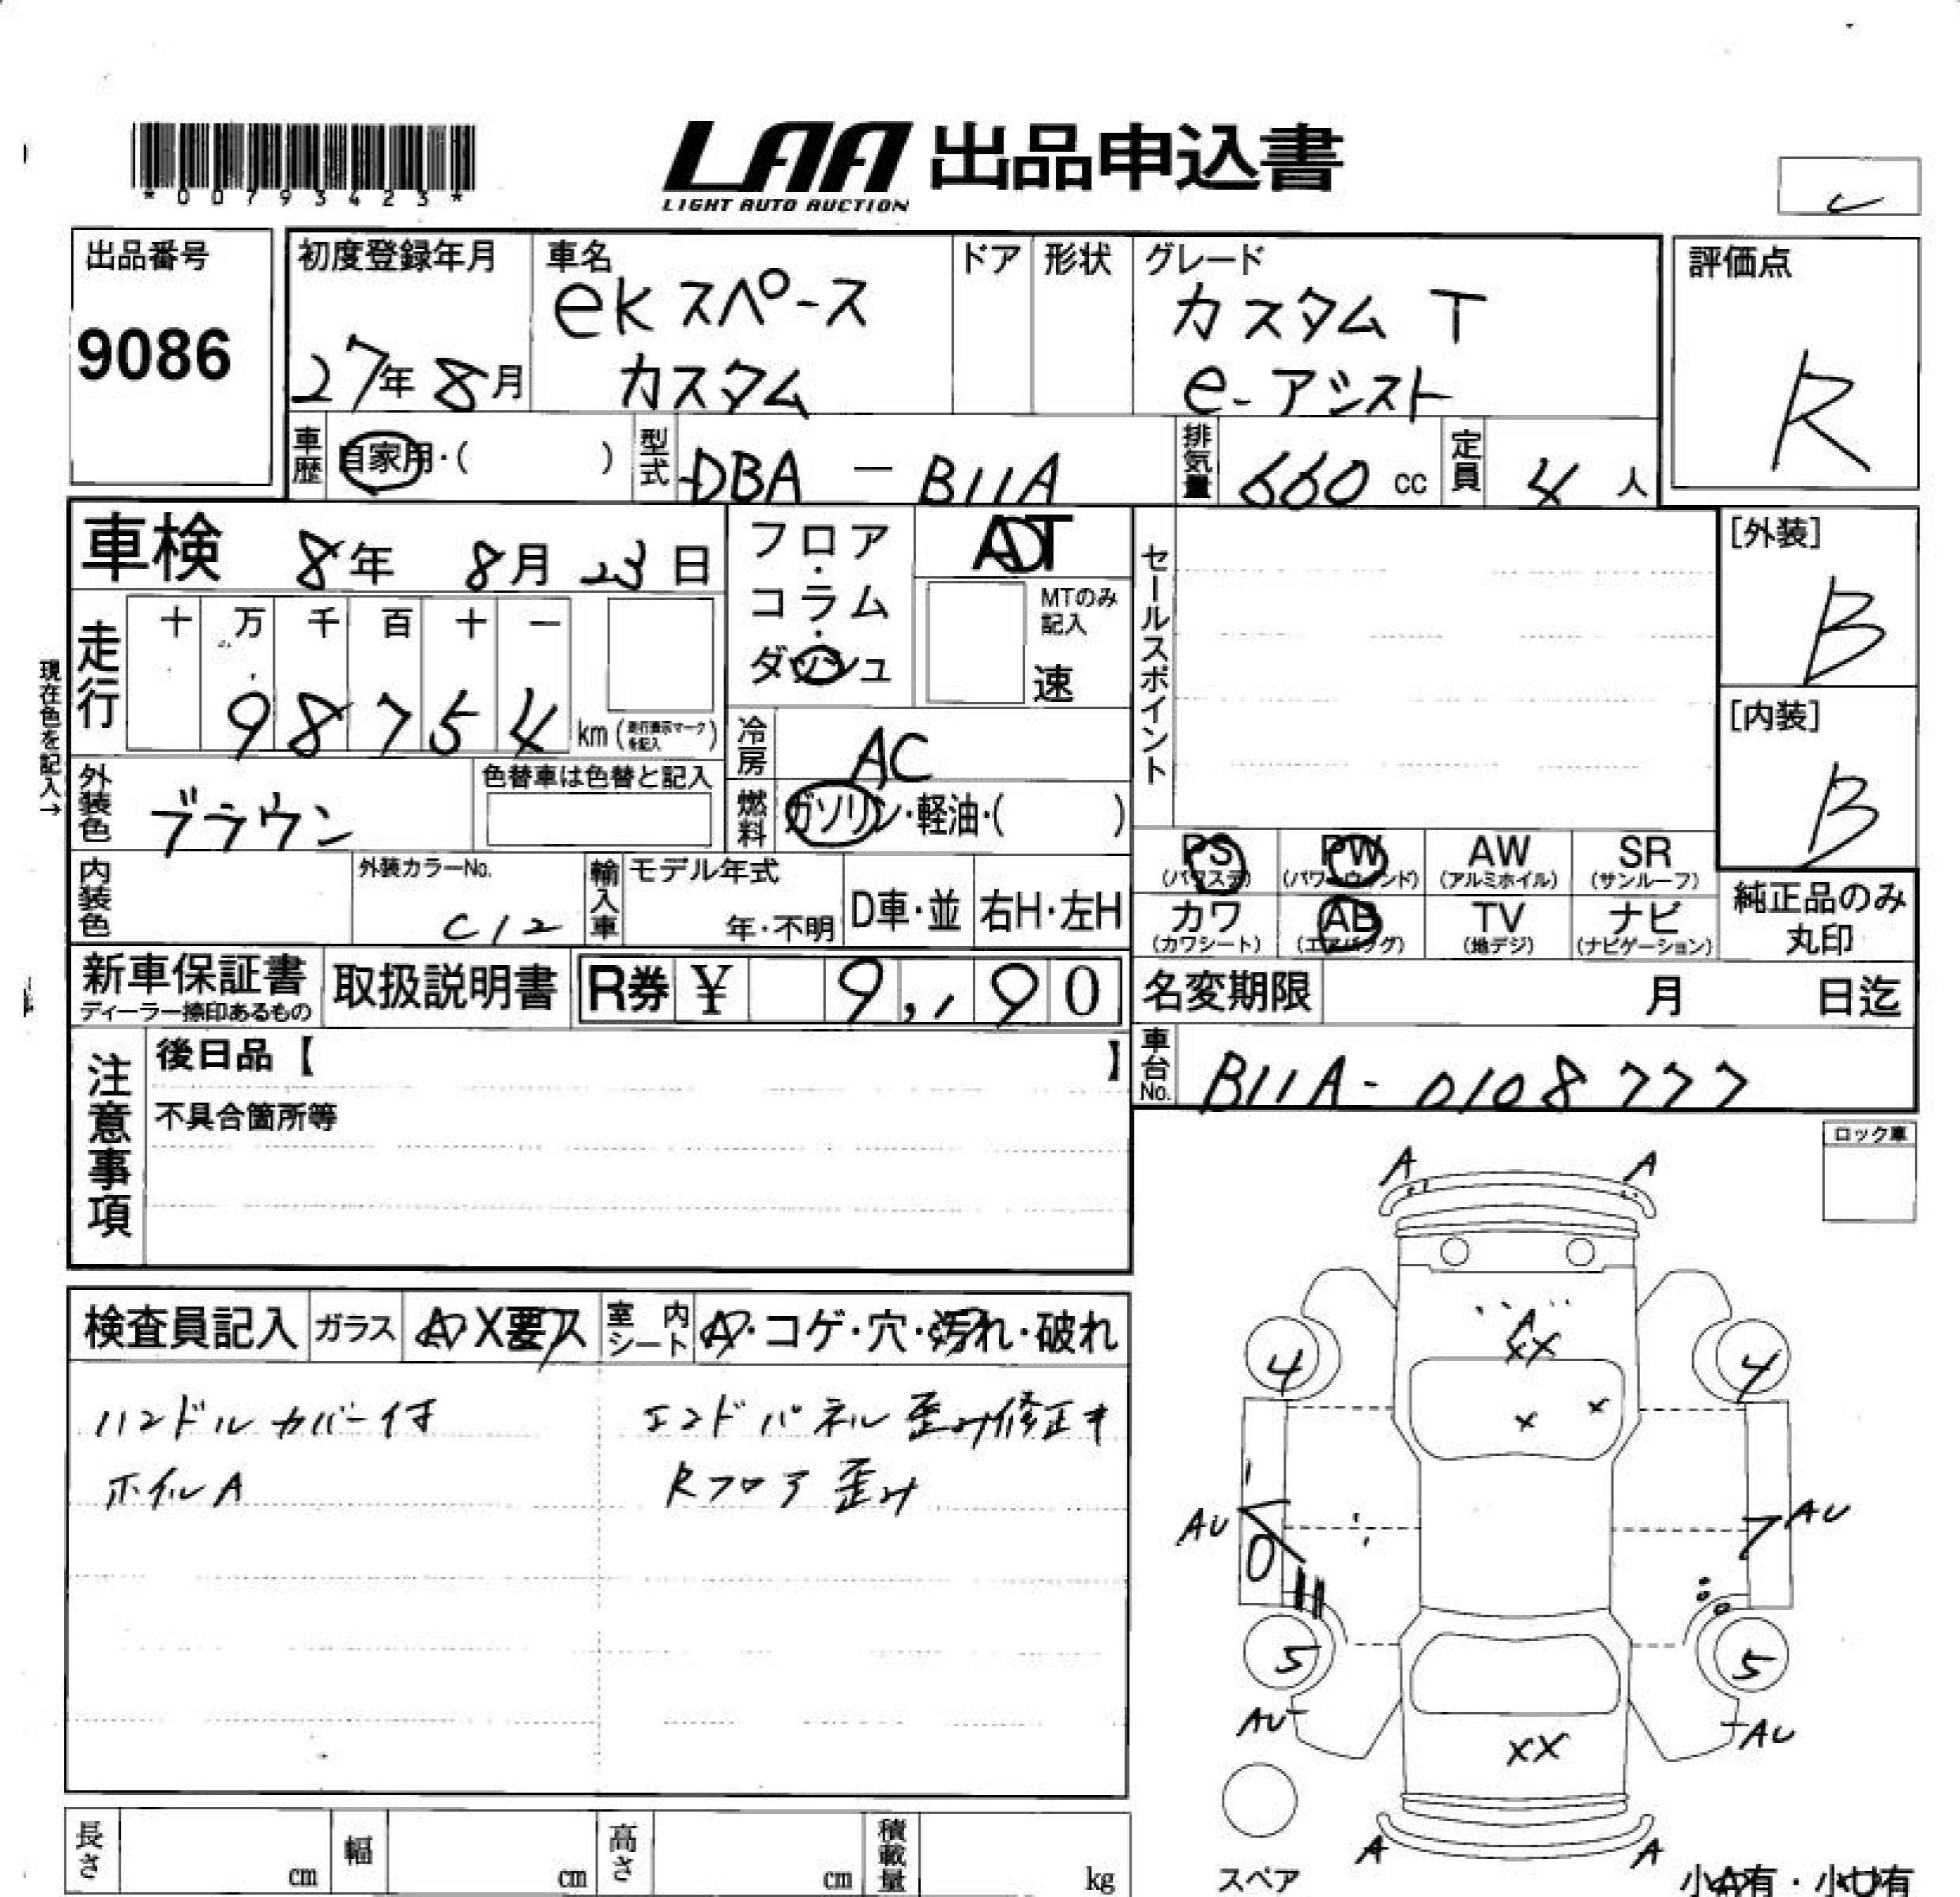 *00793423*
LAA 出品申込書
LIGHT AUTO AUCTION
出品番号
9086
初度登録年月
27年 8月
車名
ekスペース
カスタム
ドア
形状
グレード
カスタム T
e-アシスト
評価点
R
車歴
自家用・( )
型式
DBA - B11A
排気量
660 cc
定員
4 人
車検 8年 8月 23日
フロア・コラム・ダッシュ
MTのみ記入
速
セールスポイント
[外装]
B
[内装]
B
現在色を記入→
走行
十 万 千 百 十 一
98754 km
冷房
AC
外装色
ブラウン
色替車は色替と記入
燃料
ガソリン・軽油・( )
PS
(パワステ)
PW
(パワーウィンド)
AW
(アルミホイル)
SR
(サンルーフ)
内装色
外装カラーNo.
C12
輸入車
モデル年式
年・不明
D車・並
右H・左H
カワ
(カワシート)
AB
(エアバッグ)
TV
(地デジ)
ナビ
(ナビゲーション)
純正品のみ
丸印
新車保証書
ディーラー捺印あるもの
取扱説明書
R券 ¥ 9,190
名変期限
月 日迄
車台No.
B11A-0108777
注意事項
後日品【 】
不具合箇所等
ロック車
検査員記入
ガラス
室内シート
コゲ・穴・汚れ・破れ
ハンドルカバー付
エンドパネル歪み修正キ
ホイルA
Rフロア歪み
A A
A
XX
4 4
X X
AU AU
5 5
AU AU
XX
A A
スペア
長さ
cm
幅
cm
高さ
cm
積載量
kg